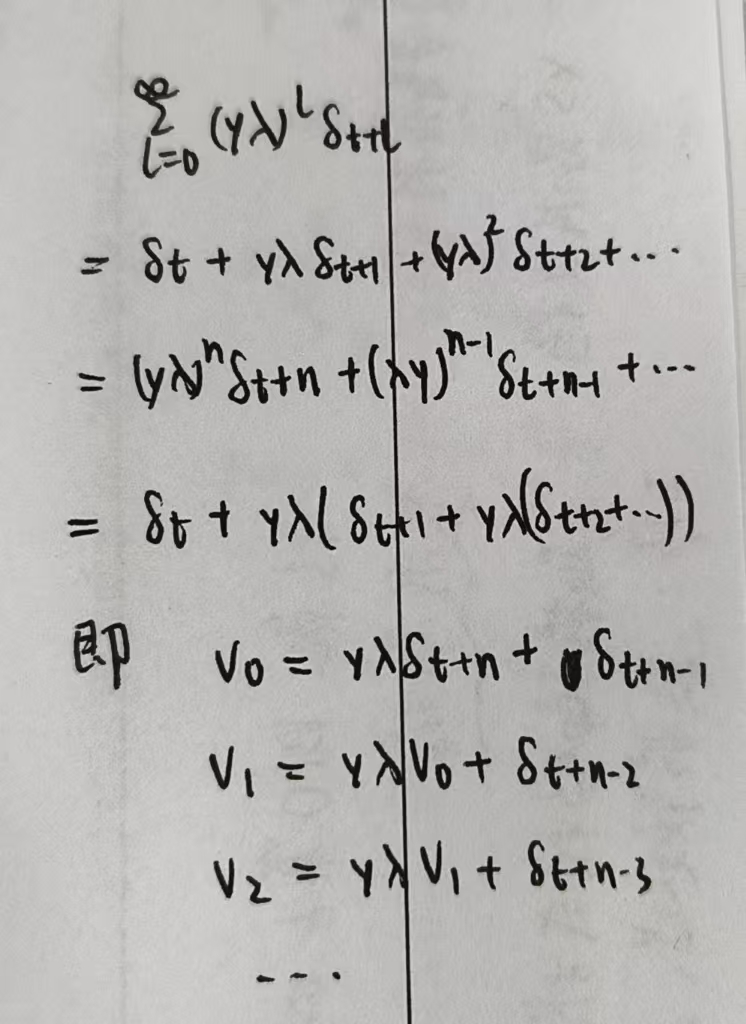 ∞
Σ (γλ)^l δt+l
l=0
= δt + γλ δt+1 + (γλ)² δt+2 + ...
= (γλ)^n δt+n + (λγ)^n-1 δt+n-1 + ...
= δt + γλ( δt+1 + γλ(δt+2+...))
即 V0 = γλδt+n + δt+n-1
V1 = γλV0 + δt+n-2
V2 = γλV1 + δt+n-3
...